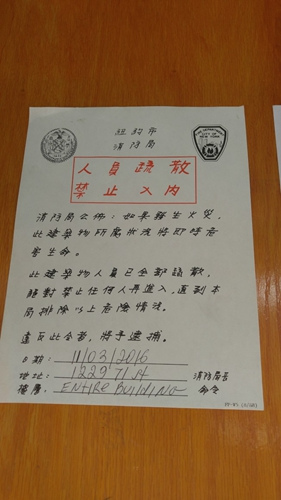 紐約市
消防局
人員疏散
禁止入內
消防局公佈：如果發生火災，
此建築物所處狀況將即時危
害生命。
此建築物人員已全部疏散，
絕對禁止任何人再進入，直到本
局排除以上危險情況。
違反此令者，將予逮捕。
日期：11/03/2016
地址：1229 71 st
樓層：ENTIRE BUILDING
消防局長
命令